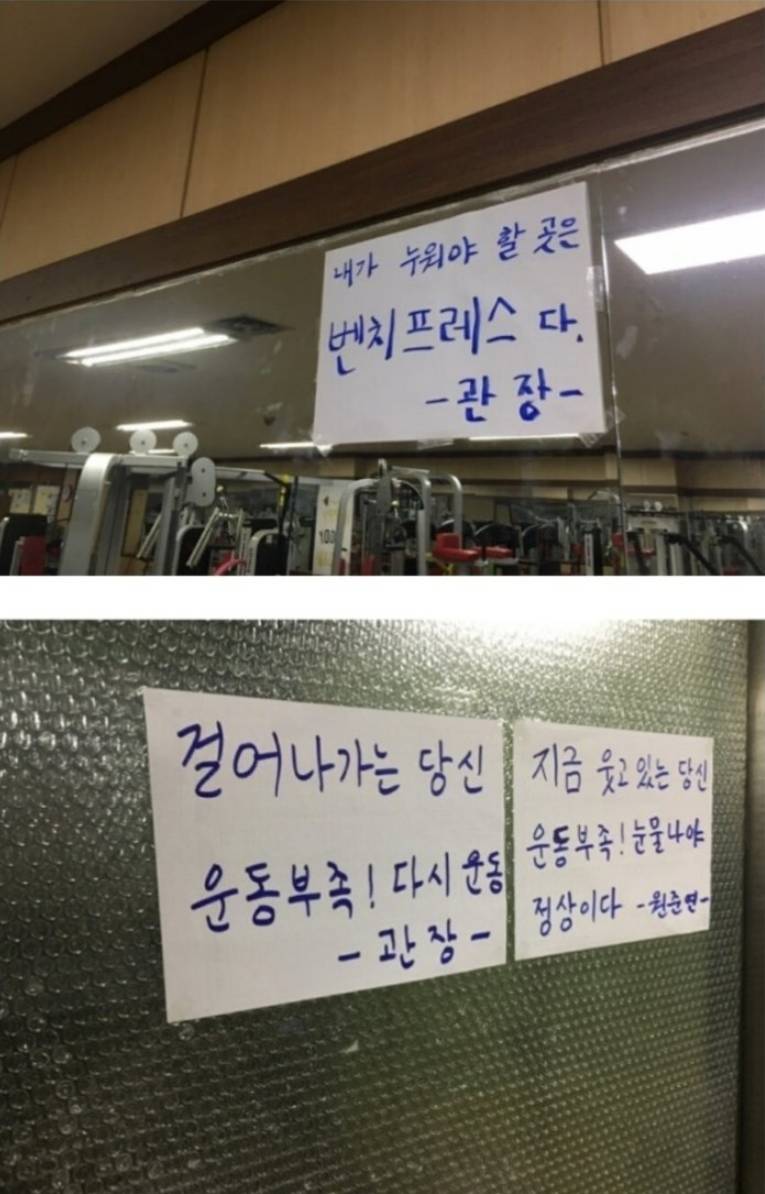 내가 누워야 할 곳은
벤치프레스 다.
-관 장-
걸어나가는 당신
운동부족! 다시 운동
- 관 장 -
지금 웃고 있는 당신
운동부족! 눈물나야
정상이다 -원준연-